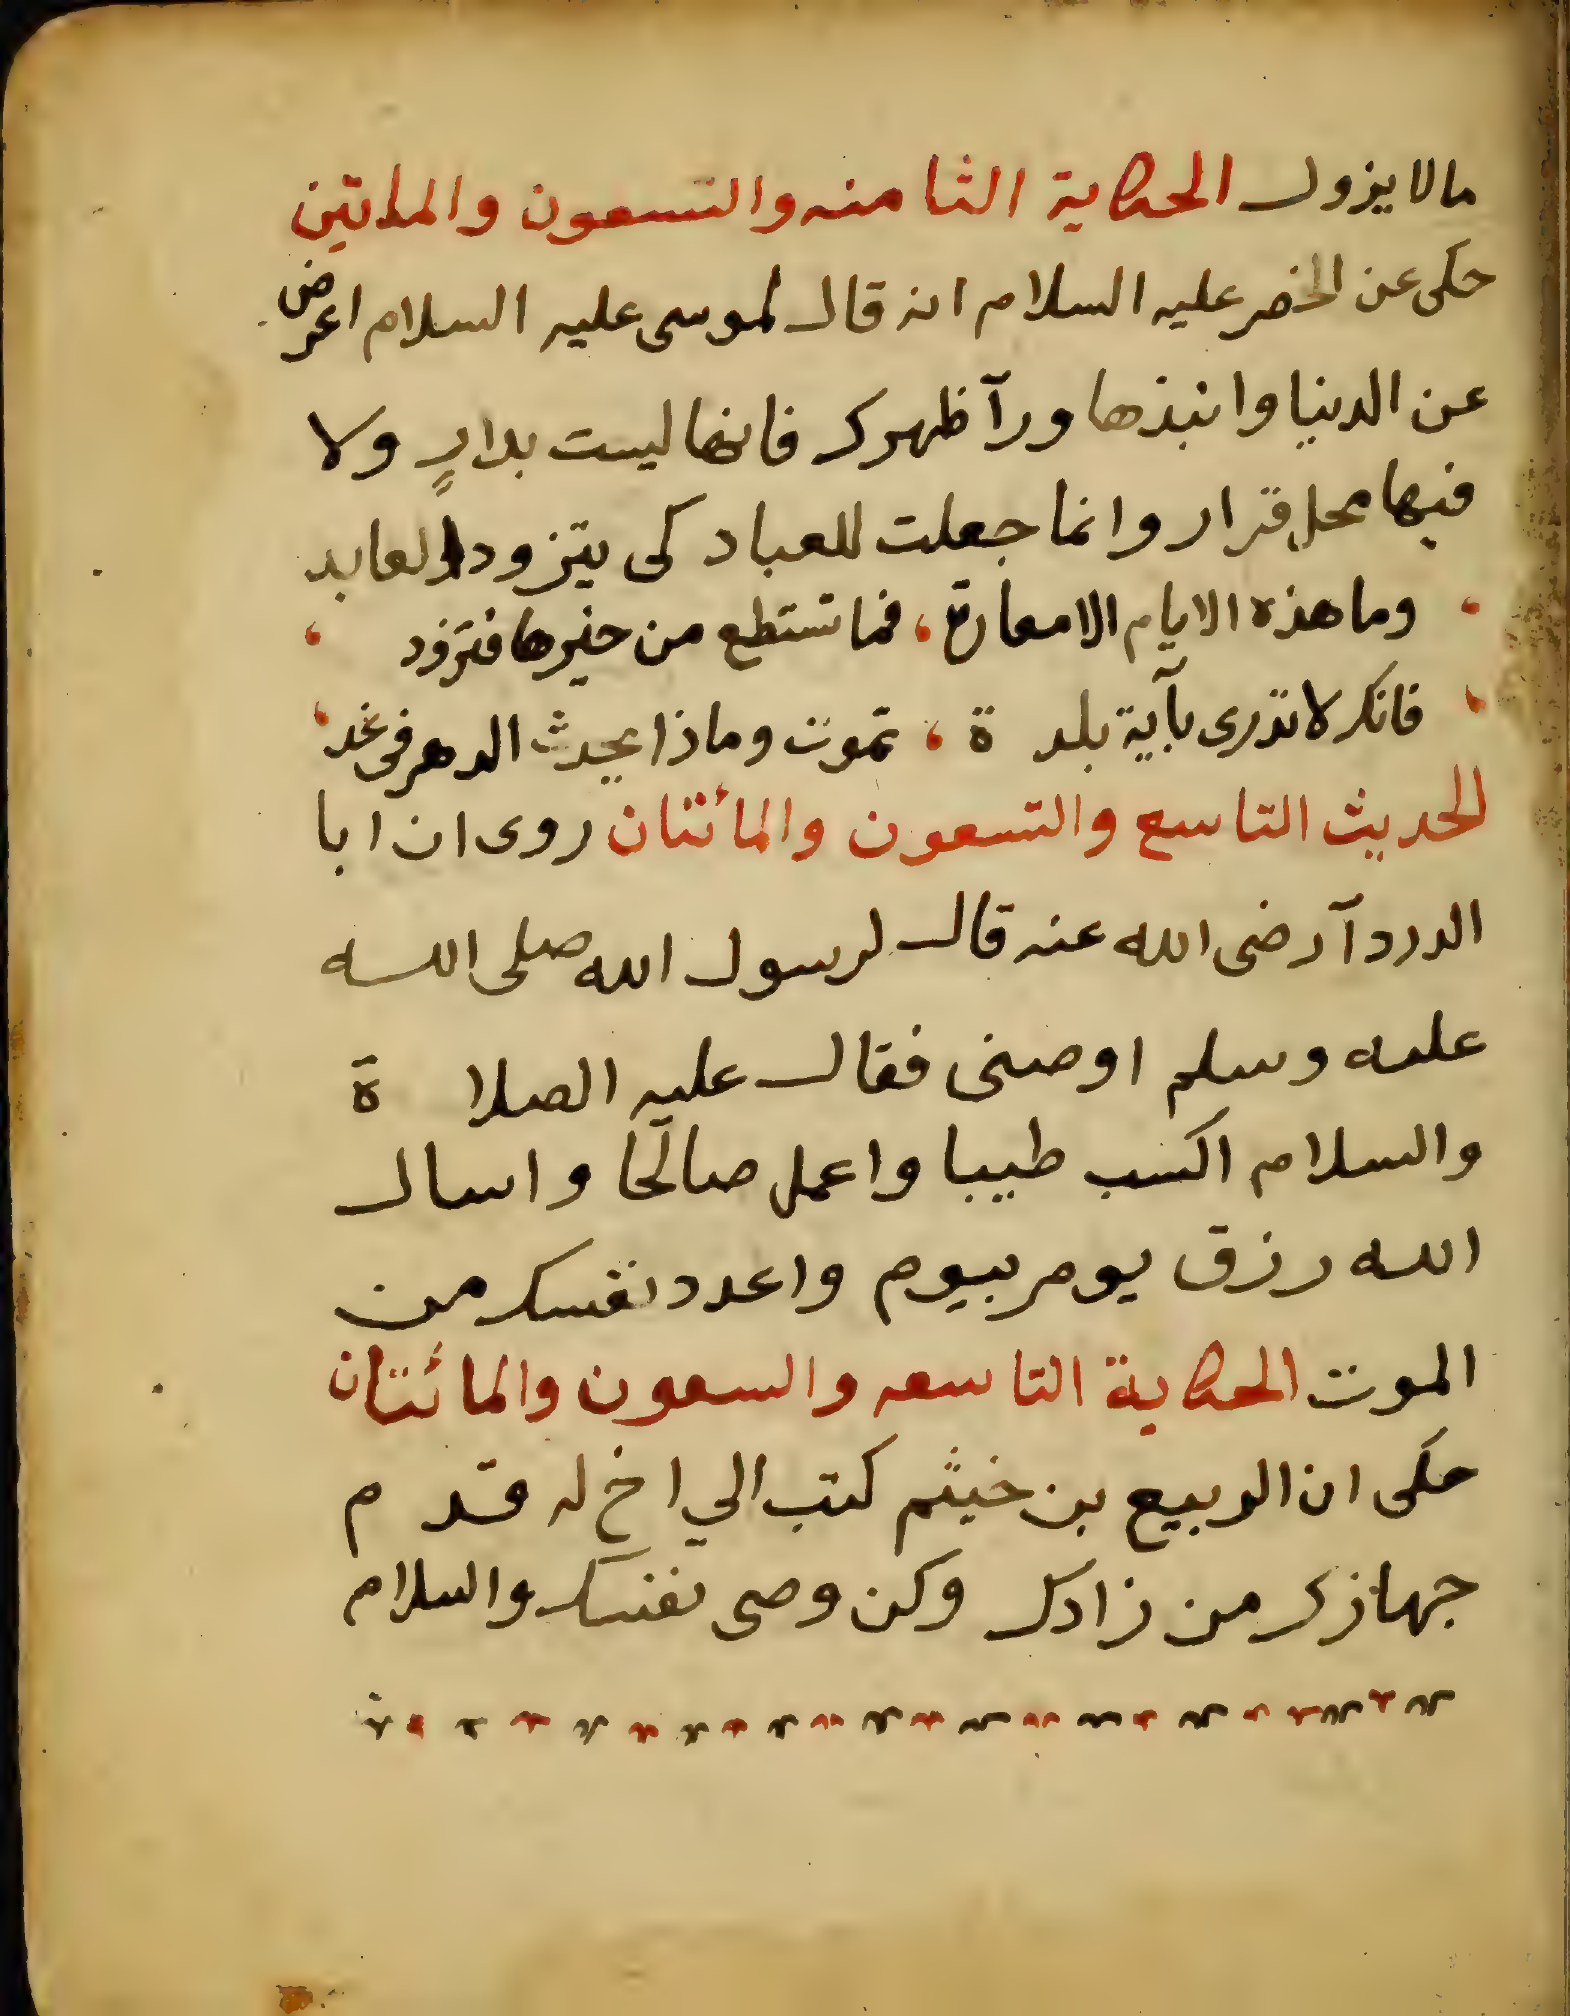 مالا يزول الحكاية الثامنه والتسعون والماتين
حكى عن الخضر عليه السلام انه قال لموسى عليه السلام اعرض
عن الدنيا وانبذها ورآ ظهرك فانها ليست بدارٍ ولا
فيها محل قرار وانما جعلت للعباد كى يتزود العابد
، وما هذه الايام الا معارة ، فما تستطع من خيرها فتزود ،
، فانك لا تدرى بآية بلدة ، تموت وماذا يحدث الدهر فى غد ،
الحديث التاسع والتسعون والمائتان روى ان ابا
الدردآ رضى الله عنه قال لرسول الله صلى الله
عليه وسلم اوصنى فقال عليه الصلاة
والسلام اكسب طيبا واعمل صالحا واسال
الله رزق يوم بيوم واعدد نفسك من
الموت الحكاية التاسعه والتسعون والمائتان
حكى ان الربيع بن خيثم كتب الي اخ له قدم
جهازك من زادك وكن وصى نفسك والسلام